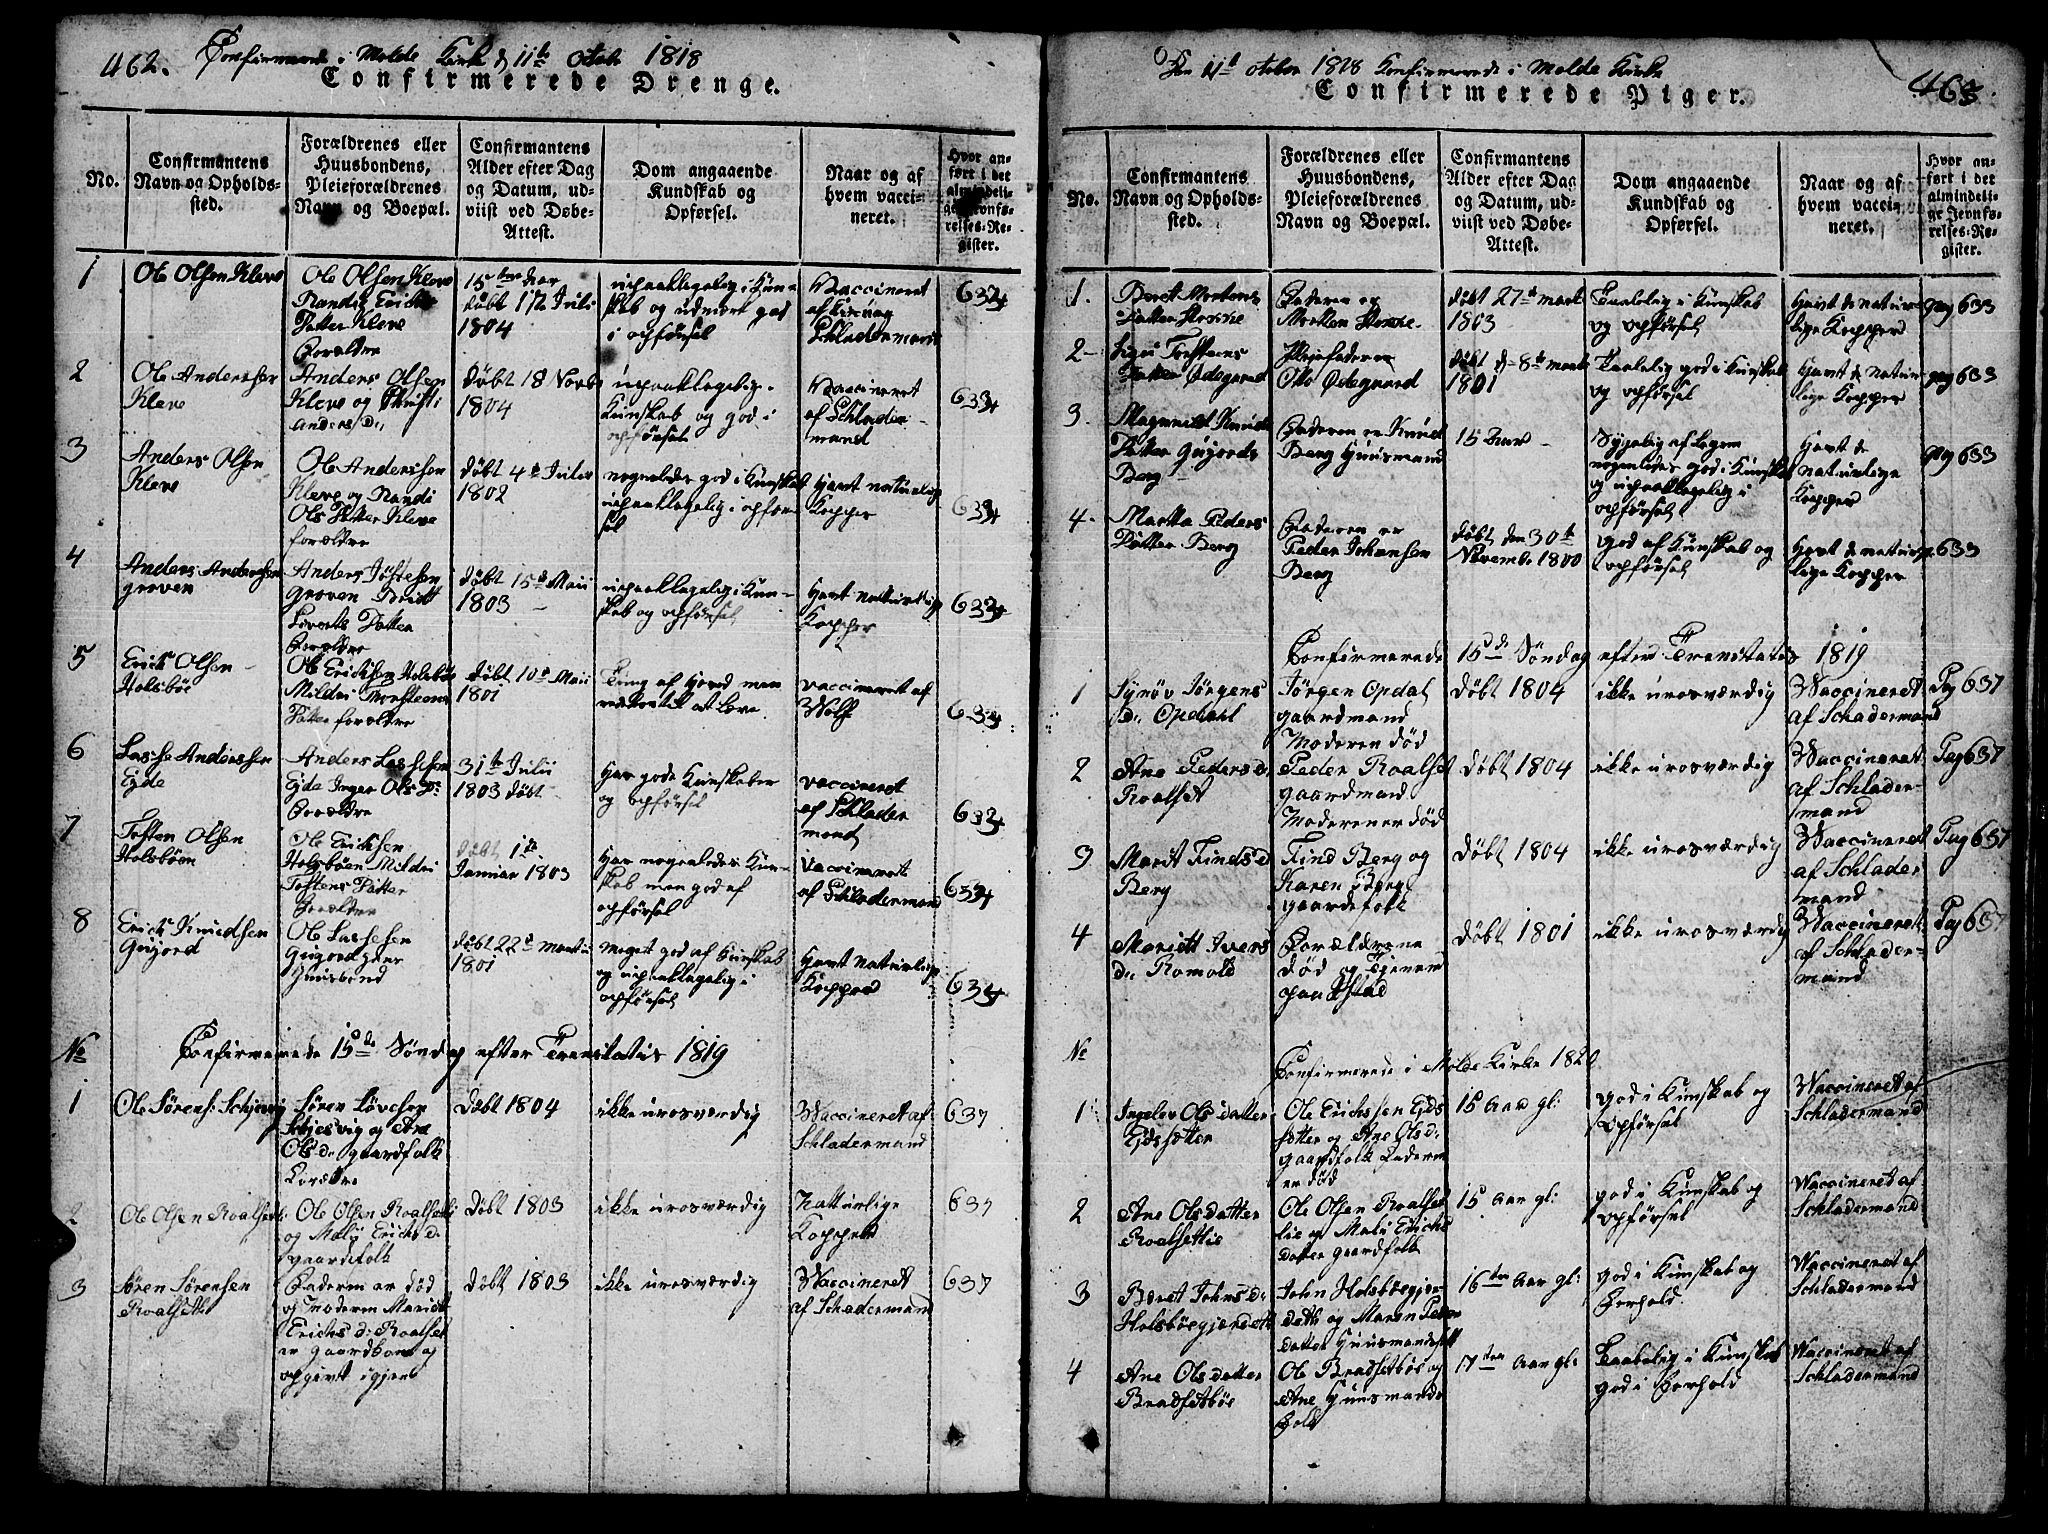 462.
Confirmerede i Molde Kirke d 11te Octobr 1818
Confirmerede Drenge.
No.
Confirmantens
Navn og Opholds-
sted.
Forældrenes eller
Huusbondens,
Pleieforældrenes
Navn og Boepæl.
Confirmantens
Alder efter Dag
og Datum, ud-
viist ved Døbe-
Attest.
Dom angaaende
Kundskab og
Opførsel.
Naar og af
hvem vacci-
neret.
Hvor an-
ført i det
almindeli-
ge Jevnfø-
relses-Re-
gister.
1
Ole Olsen Kleve
Ole Olsen Kleve
Randi Erichs
Datter Kleve
Forældre
15 ten Aar
døbt
1804
upaaklagelig i Kun-
skab og udmerk god
i opførsel
Vaccineret
Schladermand
634
2
Ole Anderssen
Kleve
Anders Olsen
Kleve og Christi
Anders D:
Døbt 18 Novb
1804
upaaklagelig i
Kunskab og god i
opførsel
Vaccineret
af Schlader-
mand
634
3
Anders Olsen
Kleve
Ole Anderssen
Kleve og Randi
Ols Datter Kleve
forældre
Døbt 4de Julii
1802
nogenledes god i Kunskab
upaaklagelig i opfør-
sel
Havt naturlige
Kopper
634
4
Anders Anderssen
Groven
Anders Jøstesen
Groven Britt
Siverts Datter
Forældre
Døbt 15de Maii
1803
upaaklagelig i Kun-
skab og opførsel
Havt naturlige
Kopper
634
5
Erick Olsen
Holsbøe
Ole Ericksen Holsbøe
Mildri Torsteens
Datter forældre
Døbt 10de Maii
1801
Tung af Hoved men
at Leve
vaccineret af
Wolf
634
6
Lasse Anderssen
Eyde
Anders Lassesen
Eyde Inger Ols D:
Forældre
31te Julii
1803 døbt
Har gode Kunskaber
og opførsel
vaccineret
af Schlader
mand
634
7
Tosten Olsen
Holsbøen
Ole Ericksen
Holsbøen Mildri
Tostens Datter
Forældre
Døbt 1te
Januar 1803
Har nogenledes Kun-
skab men god af
opførsel
vaccineret
af Schladermand
634
8
Erick Knudsen
Gujord
Ole Lassesen
Gujord
Huusbond
Døbt 22de Martii
1801
meget god af Kunskab
og upaaklagelig i
opførsel
Havt naturlige
Kopper
634
No
Confirmerede 15de Søndag efter Trinitatis 1819
1
Ole Sørens: Schjevig
Søren
Schjevig og Ane
Ols d: gaardfolk
Forældre
Døbt 1804
ikke urosværdig
Vaccineret af
Schladermand
637
2
Ole Olsen Roalset
Ole Olsen Roalset
og Mali Erichs d:
gaardefolk
Døbt 1803
ikke urosværdig
Natturlige
Kopper
637
3
Søren Sørensen
Roalset
Faderen er død
og Moderen Marit
Erichs d: Roalset
er gaardkone og
opgivt igjen
Døbt 1803
ikke urosværdig
Vaccineret
af Schladermand
637
Den 11te October 1818 Confirmerede i Molde Kirke
463
Confirmerede Piger.
No.
Confirmantens
Navn og Opholds-
sted.
Forældrenes eller
Huusbondens,
Pleieforældrenes
Navn og Boepæl.
Confirmantens
Alder efter Dag
og Datum, ud-
viist ved Døbe-
Attest.
Dom angaaende
Kundskab og
Opførsel.
Naar og af
hvem vacci-
neret.
Hvor an-
ført i det
almindeli-
ge Jevnfø-
relses-Re-
gister.
1.
Beret Mortens
Datter
Faderen er
Morten
døbt 27de Marti
1803
Taalelig i Kunskab
og opførsel
Havt de natur-
lige Kopper
pag 633
2
Torsteens
Datter Ødegaard
Pleiefaderen
Otto Ødegaard
Døbt d 8de Marti
1801
Taalelig god i Kunskab
og opførsel
Havt de natur
lige Kopper
pag 633
3.
Magrinet Knuds
Datter Gujords
Berg
Faderen er Knud
Berg Huusmand
15 Aar
Sygelig af Legem
nogenledes god i Kunskab
og upaaklagelig i
opførsel
Havt de
naturlige
Kopper
pag 633
4.
Martta Peders
Datter Berg
Faderen er
Peder Johansen
Berg
Døbt den 30te
Novembr 1800
God af Kunskab og
opførsel
Havt de natur
lige Kopper
p. 633
Confirmerede 15de Søndag efter Trinitatis 1819
1
Synøv Jørgens
D: Opdahl
Jørgen Opdal
gaardmand
Moderen død
Døbt 1804
ikke urosværdig
Vaccineret
af Schladermand
Pag 637
2
Ane Peders d:
Roalset
Peder Roalset
gaardmand
Moderen er død
Døbt 1804
ikke urosværdig
Vaccineret
af Schlader-
mand
Pag 637
3
Marit Finds d
Berg
Find Berg og
Karen Berg
gaardefolk
Døbt 1804
ikke urosværdig
Vaccineret
af Schlader
mand
Pag 637
4
Maritt Ivers
D: Romold
Forældrene
død og Tjener
paa Østad
Døbt 1801
ikke urosværdig
Vaccineret
af Schlader-
mand
Pag 637
No
Confirmerede i Molde Kirke 1820
1
Ingelev Ols datter
Ejdssetter
Ole Erichssen Ejds
setter og Ane Ols d:
gaardfolk Faderen
er død
15 Aar gl:
god i Kunskab og
Opførsel
Vaccineret af
Schladermand
2
Ane Ols datter
Roalsetlie
Ole Olsen Roalset
lie og Mali Erichs
datter gaardfolk
15 Aar gl:
god i Kunskab og
opførsel
Vaccineret af
Schladermand
3
Beret Johns d:
Holsbøegjerdet
John Holsbøegjer
det og Maren Peder
datter Huusmandsfolk
16 ten Aar gl:
god i Kunskab og
Forhold.
Vaccineret af
Schladermand
4
Ane Ols datter
Bradsetbøe
Ole Bradsetbøe og
Ane Huusmands
folk
17 ten Aar gl:
Taalelig i Kunskab
god i Forhold
Vaccineret af
Schladermand